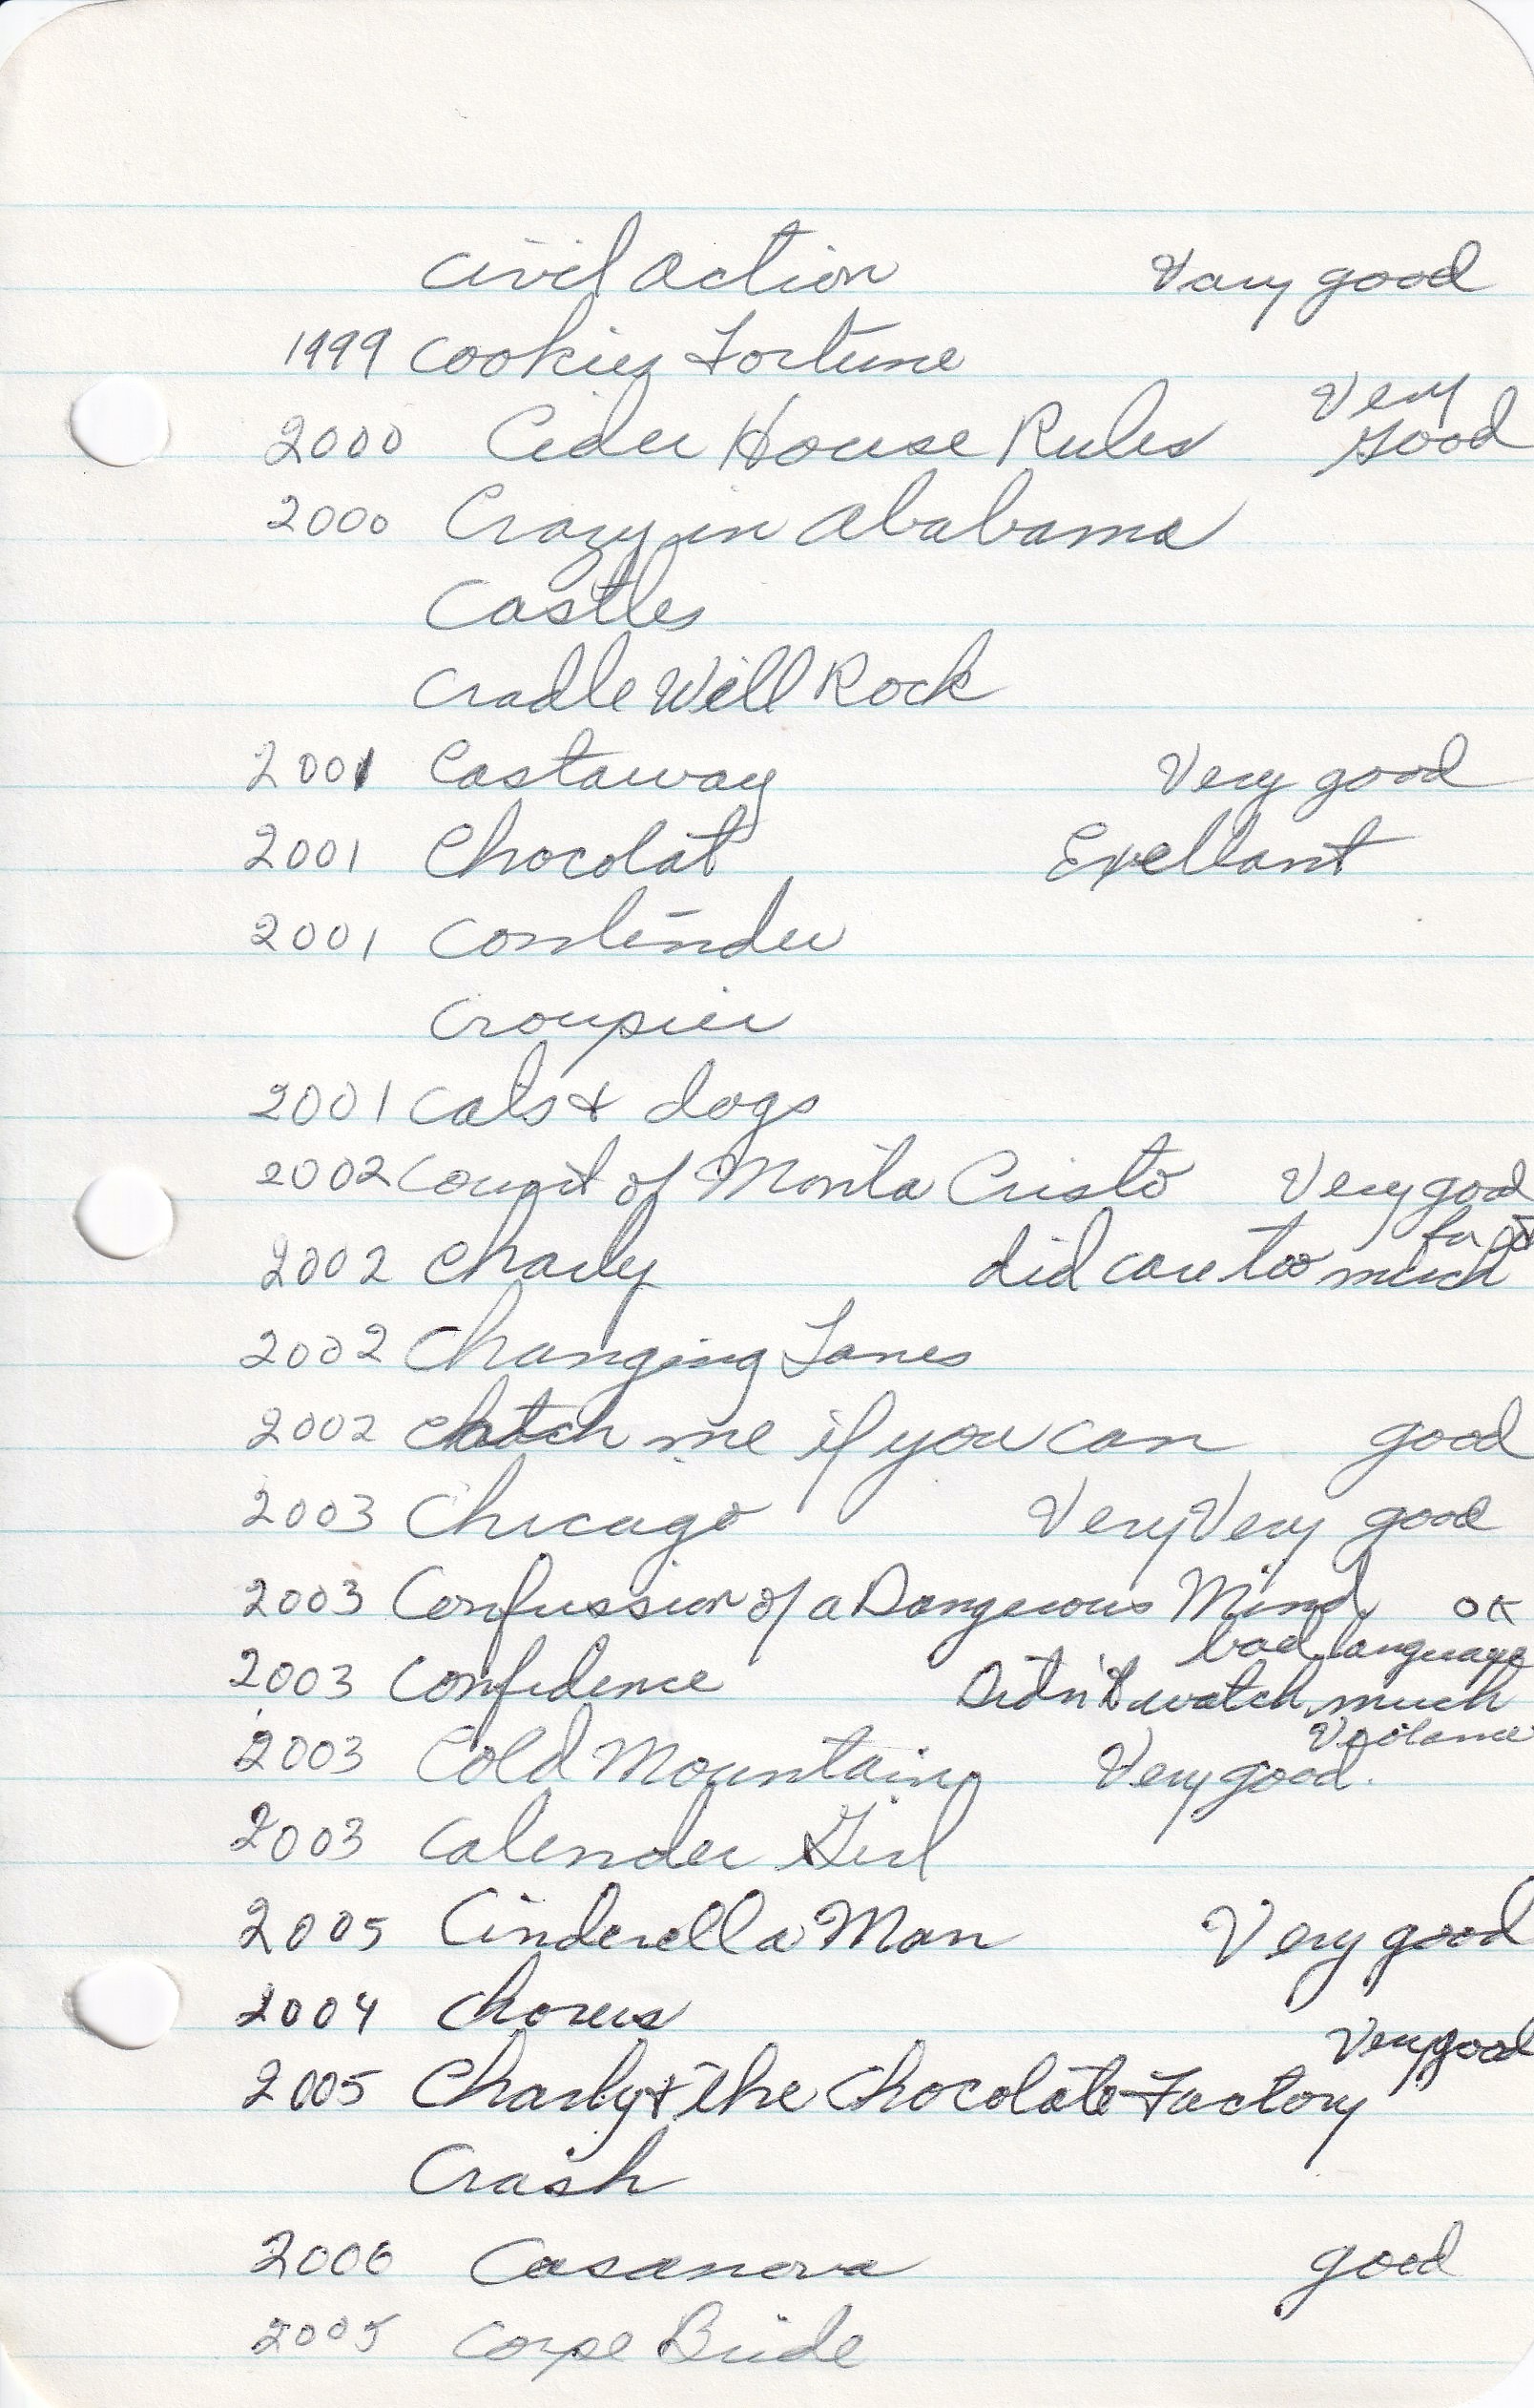 Civil Action Vary good
1999 Cookies Fortune
Very
2000 Cider House Rules good
2000 Crazy in Alabama
Castles
Cradle Will Rock
2001 Castaway Very good
2001 Chocolat Exellant
2001 Contender
Croupier
2001 Cats & dogs
2002 Count of Monta Cristo Very good
2002 Charly did care too much for it
2002 Changing Lanes
2002 Catch me if you can good
2003 Chicago Very Very good
2003 Confussion of a Dangerous Mind OK
bad language
2003 Confidence Didn't watch much
Voilance
2003 Cold Mountain Very good.
2003 Calender Girl
2005 Cinderella Man Very good
2004 Chorus
Very good
2005 Charly & the Chocolate Factory
Crash
2006 Casanova good
2005 Corpe Bride